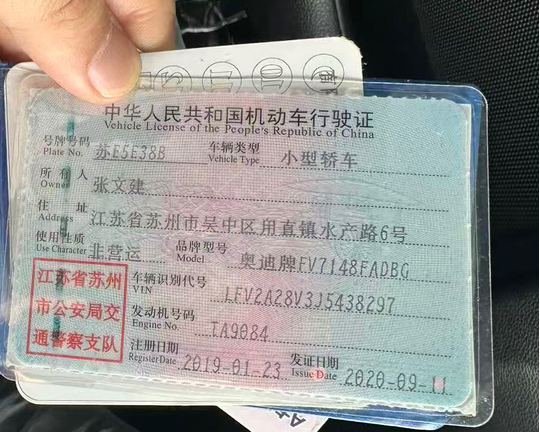 中华人民共和国机动车行驶证
Vehicle License of the People's Republic of China
号牌号码 苏E5E38B 车辆类型 小型轿车
Plate No. Vehicle Type
所有人 张文建
Owner
住址 江苏省苏州市吴中区甪直镇水产路6号
Address
使用性质 非营运 品牌型号 奥迪牌FV7148FADBG
Use Character Model
江苏省苏州
市公安局交
通警察支队
车辆识别代号 LFV2A28V3J5438297
VIN
发动机号码 TA9084
Engine No.
注册日期 2019-01-23 发证日期 2020-09-11
Register Date Issue Date